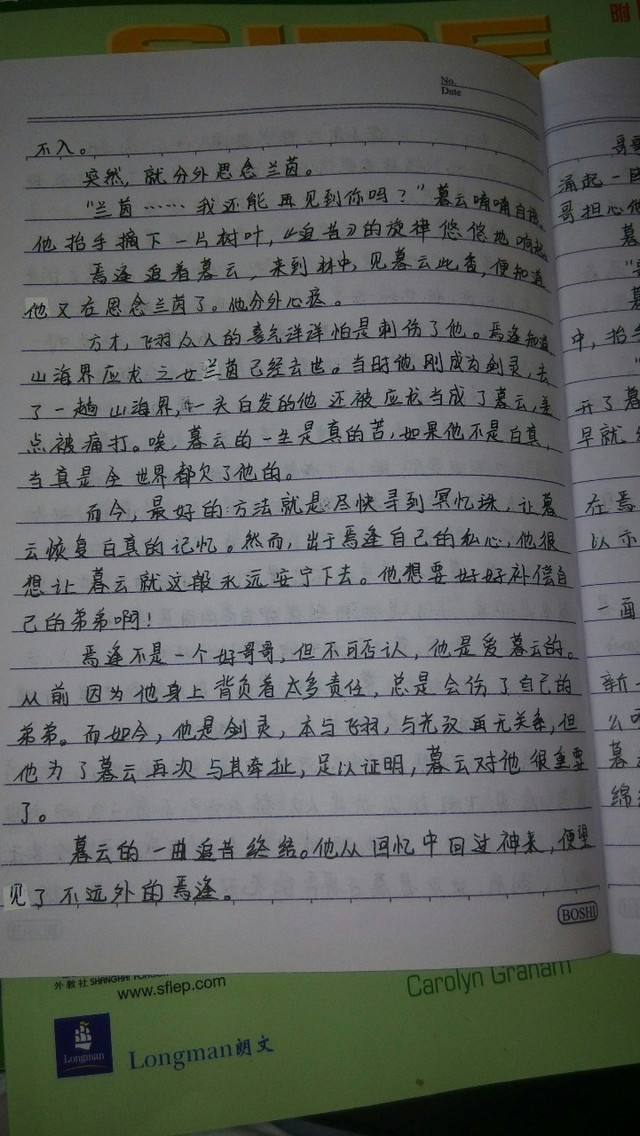 附
SIDE
No.
Date
不入。
突然，就分外思念兰茵。
“兰茵……我还能再见到你吗？”暮云喃喃自语，
他抬手摘下一片树叶，《追昔》的旋律悠悠地响起。
焉逢追着暮云，来到林中，见暮云此番，便知道
他又在思念兰茵了。他分外心疼。
方才，飞羽众人的喜气洋洋怕是刺伤了他。焉逢知道，
山海界应龙之女兰茵已经去世。当时他刚成为剑灵，去
了一趟山海界，一头白发的他还被应龙当成了暮云，差
点被痛打。唉，暮云的一生是真的苦，如果他不是白真，
当真是全世界都欠了他的。
而今，最好的方法就是尽快寻到冥忆珠，让暮
云恢复白真的记忆。然而，出于焉逢自己的私心，他很
想让暮云就这般永远安宁下去。他想要好好补偿自
己的弟弟啊！
焉逢不是一个好哥哥，但不可否认，他是爱暮云的。
从前因为他身上背负着太多责任，总是会伤了自己的
弟弟。而如今，他是剑灵，本与飞羽，与光汉再无关系，但
他为了暮云再次与其牵扯，足以证明，暮云对他很重要
了。
暮云的一曲追昔终结。他从回忆中回过神来，便望
见了不远外的焉逢。
BOSHI
涌起一
哥担心他
暮
中，抬
开了暮
早就
在焉
以亦
一面
新
么
暮
绵
外教社
www.sflep.com
Carolyn Graham
Longman
Longman朗文